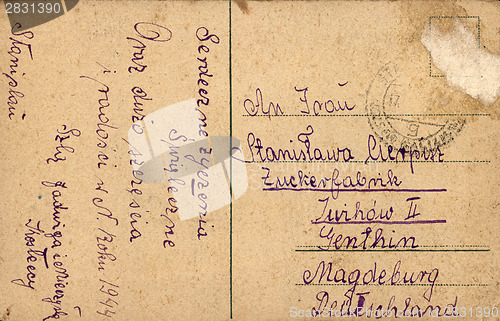 Serdeczne życzenia
Świąteczne
Oraz dużo szczęścia
i radości w N. Roku 1944
Szlą Jadwiga i Mieczysł.
Stanisław
An Frau
Stanisława Cierpisz
Zuckerfabrik
Genthin
Magdeburg
Deutschland
2831390